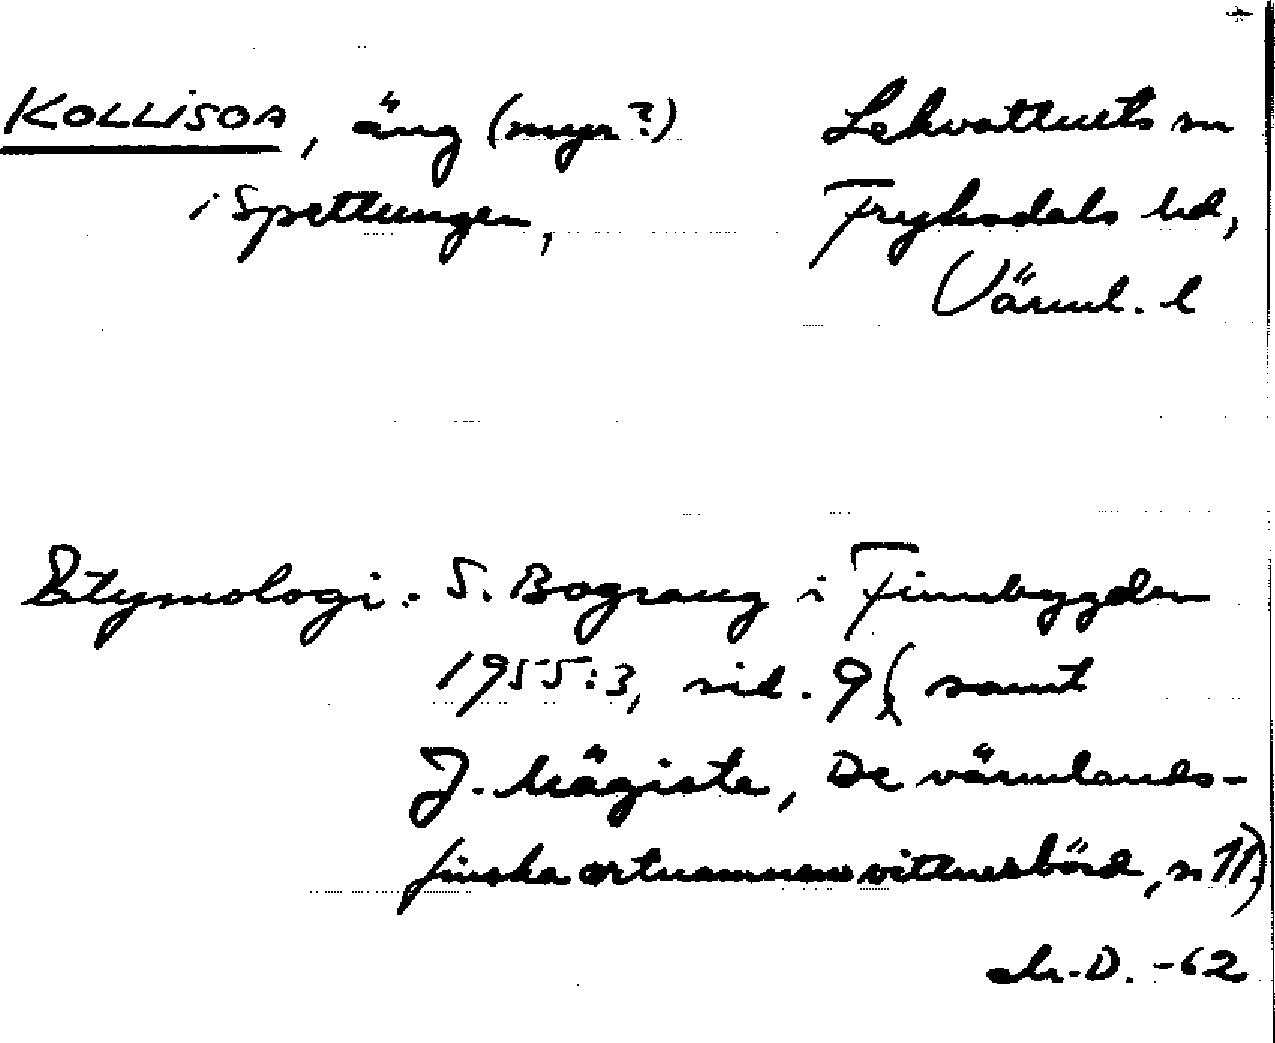 KOLLISOA, äng (myr?)
i Spettungen,
Lekvattnets sn
Fryksdals hd,
Värml. l
Etymologi: S. Bograng i Finnbygden
1955:3, sid. 9 (samt
J. Mägiste, De värmlands-
finska ortnamnens vittnesbörd, s. 11)
-62